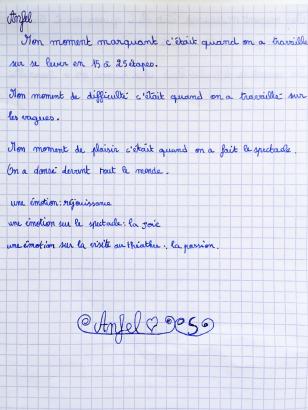 Anfel
Mon moment marquant c'était quand on a travaillé
sur se lever en 15 à 25 étapes.
Mon moment de difficulté c'était quand on a travaillé sur
les vagues.
Mon moment de plaisir c'était quand on a fait le spectacle.
On a dansé devant tout le monde.
une émotion : réjouissance
une émotion sur le spectacle : la joie
une émotion sur la visite au théâthre : la passion.
Anfel